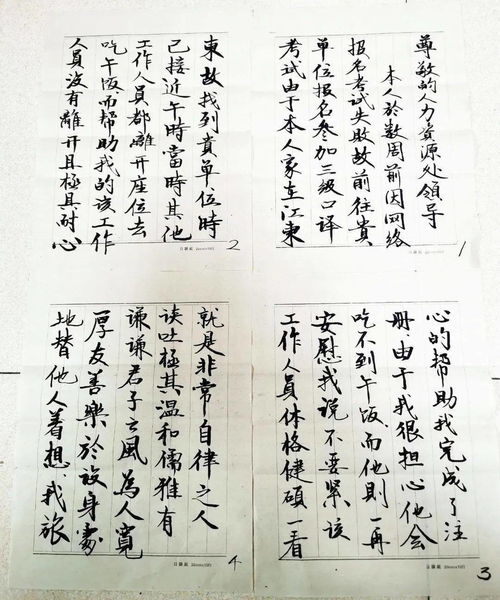 尊敬的人力资源处领导
本人於数周前因网络
报名考试失败故前往貴
单位报名参加三级口译
考试由于本人家在江東
1
東故找到貴单位時
已接近午時當時其他
工作人员都離开座位去
吃午饭,而帮助我的该工作
人員没有離开且極具耐心
2
心的帮助我完成了注
册,由于我很担心他会
吃不到午饭,而他則一再
安慰我说不要紧该
工作人员体格健碩一看
3
就是非常自律之人
谈吐極其温和儒雅有
谦谦君子之風為人寬
厚友善樂於设身處
地替他人着想,我旅
4